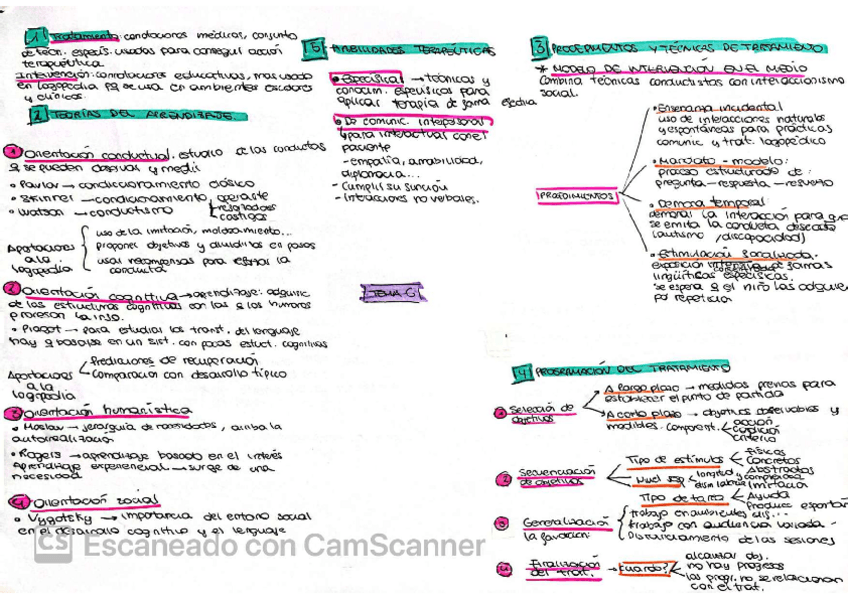 1 Tratamiento: connotaciones médicas, conjunto
de técn. especís. usadas para conseguir acción
terapéutica
Intervención: connotaciones educativas, mas usado
en logopedia pq se usa en ambientes escolares
y clínicos.
2 TEORÍAS DEL APRENDIZAJE
1 Orientación conductual. estudio de las conductas
q se pueden observar y medir
• Pavlov → condicionamiento clásico
• Skinner → condicionamiento operante
• Watson → conductismo
castigos
Aportaciones a la logopedia
uso de la imitación, moldeamiento...
proponer objetivos y dividirlos en pasos
usar recompensas para reforzar la
conducta
2 Orientación cognitiva → aprendizaje: adquirir
de las estructuras cognitivas con las q los humanos
procesan la info.
• Piaget → para estudiar los trast. del lenguaje
hay q basarse en un sist. con pocas estruct. cognitivas
Aportaciones a la logopedia
Predicciones de recuperación
Comparación con desarrollo típico
3 Orientación humanística
• Maslow → jerarquía de necesidades, arriba la
autorrealización
• Rogers → aprendizaje basado en el interés
Aprendizaje experiencial → surge de una
necesidad
4 Orientación social
• Vygotsky → importancia del entorno social
en el desarrollo cognitivo y el lenguaje
5 HABILIDADES TERAPÉUTICAS
• Específicas → técnicas y
conocim. específicos para
aplicar terapia de forma efectiva
• De comunic. interpersonal
para interactuar con el
paciente
- empatía, amabilidad,
diplomacia...
- Cumplir su función
- Interacciones no verbales.
TEMA 6
3 PROCEDIMIENTOS Y TÉCNICAS DE TRATAMIENTO
* MODELO DE INTERVENCIÓN EN EL MEDIO
Combina técnicas conductistas con interaccionismo
social.
PROCEDIMIENTOS
• Enseñanza incidental
uso de interacciones naturales
y espontáneas para prácticas
comunic. y trat. logopédico
• Mandato - modelo:
proceso estructurado de:
pregunta - respuesta - refuerzo
• Demora temporal
demorar la interacción para que
se emita la conducta deseada
(autismo / discapacidad)
• Estimulación focalizada.
exposición de formas
lingüísticas específicas.
se espera q el niño las adquiera
por repetición
4 PROGRAMACIÓN DEL TRATAMIENTO
1 Selección de objetivos
A largo plazo → medidas previas para
establecer el punto de partida
A corto plazo → objetivos observables y
medibles. Component.
acción
condición
criterio
2 Secuenciación de objetivos
Tipo de estímulos
Físicos
Concretos
Abstractos
Nivel rsp
longitud y complejidad
Imitación
Tipo de tarea
Ayuda
Produce espontán
3 Generalización
la favorecen:
trabajo en ambientes dis...
trabajo con audiencia variada -
Distanciamiento de las sesiones
4 Finalización del trat. → cuando?
alcanzar obj.
no hay progresos
los progr. no se relacionan
con el trat.
CS Escaneado con CamScanner